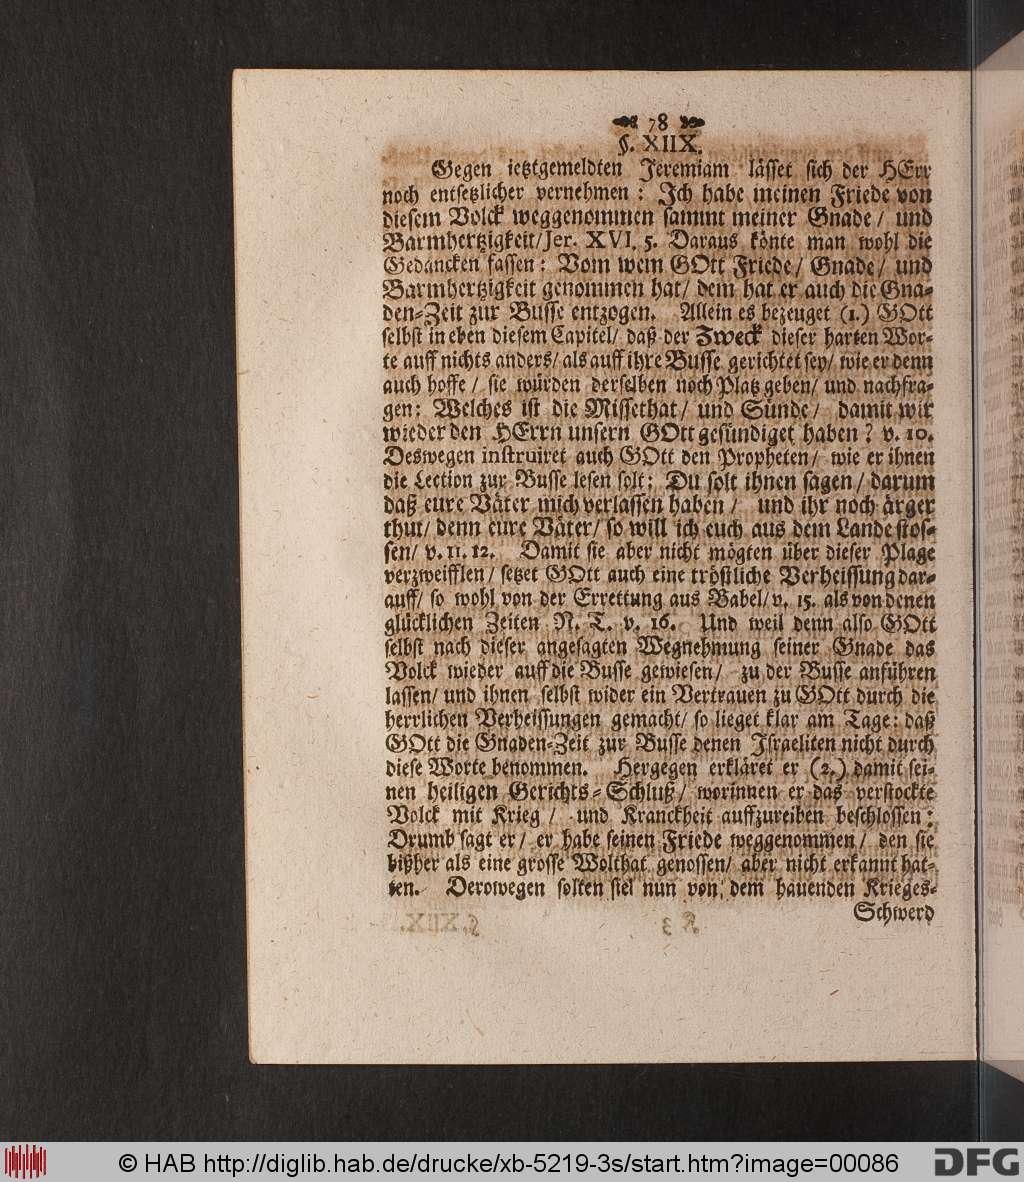 78
§. XIIX.
Gegen ietztgemeldten Jeremiam lässet sich der HErr
noch entsetzlicher vernehmen: Jch habe meinen Friede von
diesem Volck weggenommen sammt meiner Gnade/ und
Barmhertzigkeit/ Jer. XVI, 5. Daraus könte man wohl die
Gedancken fassen: Vom wem GOtt Friede/ Gnade/ und
Barmhertzigkeit genommen hat/ dem hat er auch die Gna-
den-Zeit zur Busse entzogen. Allein es bezeuget (1.) GOtt
selbst in eben diesem Capitel/ daß der Zweck dieser harten Wor-
te auff nichts anders/ als auff ihre Busse gerichtet sey/ wie er denn
auch hoffe/ sie würden derselben noch Platz geben/ und nachfra-
gen: Welches ist die Missethat/ und Sünde/ damit wir
wieder den HErrn unsern GOtt gesündiget haben? v. 10.
Deswegen instruiret auch GOtt den Propheten/ wie er ihnen
die Lection zur Busse lesen solt: Du solt ihnen sagen/ darum
daß eure Väter mich verlassen haben/ und ihr noch ärger
thut/ denn eure Väter/ so will ich euch aus dem Lande stos-
sen/ v. 11. 12. Damit sie aber nicht mögten über dieser Plage
verzweifflen/ setzet GOtt auch eine tröstliche Verheissung dar-
auff/ so wohl von der Errettung aus Babel/ v. 15. als von denen
glücklichen Zeiten N. T. v. 16. Und weil denn also GOtt
selbst nach dieser angesagten Wegnehmung seiner Gnade das
Volck wieder auff die Busse gewiesen/ zu der Busse anführen
lassen/ und ihnen selbst wider ein Vertrauen zu GOtt durch die
herrlichen Verheissungen gemacht/ so lieget klar am Tage: daß
GOtt die Gnaden-Zeit zur Busse denen Jsraeliten nicht durch
diese Worte benommen. Hergegen erkläret er (2.) damit sei-
nen heiligen Gerichts-Schluß/ worinnen er das verstockte
Volck mit Krieg/ und Kranckheit auffzureiben beschlossen:
Drumb sagt er/ er habe seinen Friede weggenommen/ den sie
bißher als eine grosse Wolthat genossen/ aber nicht erkannt hat-
ten. Derowegen solten sie nun von dem hauenden Krieges-
Schwerd
© HAB http://diglib.hab.de/drucke/xb-5219-3s/start.htm?image=00086
DFG